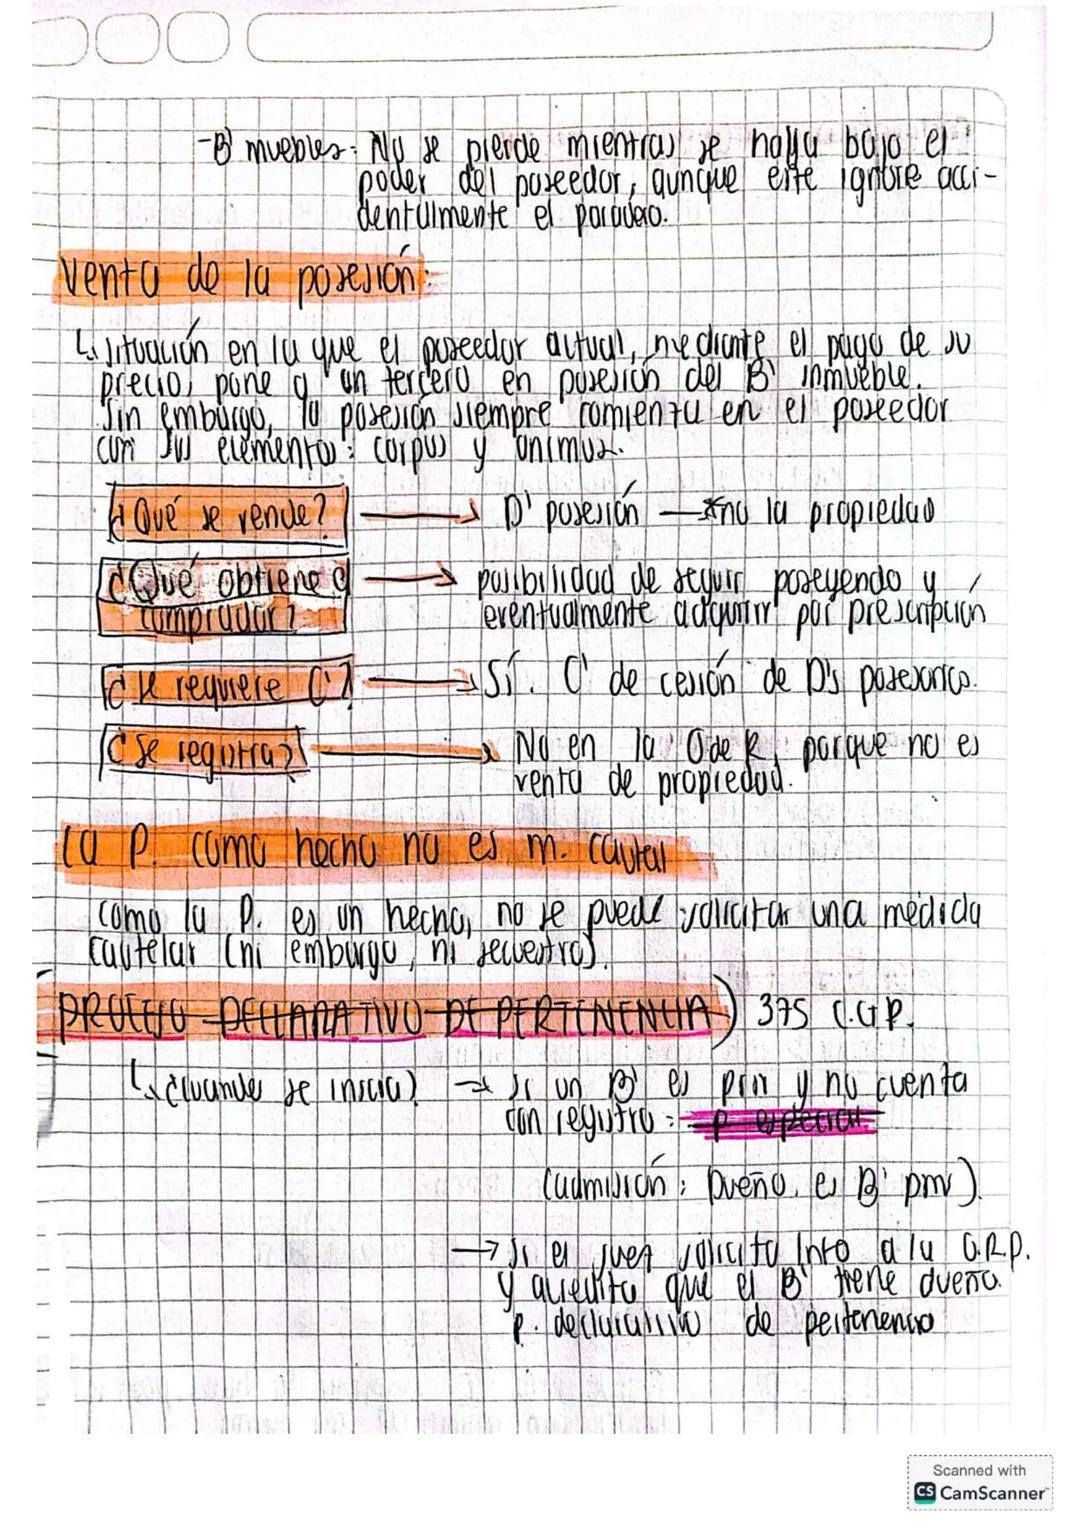 -B' muebles: No se pierde mientras se halla bajo el
poder del poseedor, aunque este ignore acci-
dentalmente el paradero.
Venta de la posesión:
↳ situación en la que el poseedor actual, mediante el pago de su
precio, pone a un tercero en posesión del B' inmueble.
Sin embargo, la posesión siempre comienza en el poseedor
con sus elementos: corpus y animus.
¿Qué se vende? → D' posesión → *no la propiedad
¿Qué obtiene el comprador? → posibilidad de seguir poseyendo y
eventualmente adquirir por prescripción
¿Se requiere C'? → Sí. C' de cesión de D's posesorios.
¿Se registra? → No en la O de R, porque no es
venta de propiedad.
La P. como hecho no es m. cautelar
como la P. es un hecho, no se puede solicitar una medida
cautelar (ni embargo, ni secuestro).
PROCESO DECLARATIVO DE PERTENENCIA) 375 C.G.P.
↳ ¿Cuándo se inicia? → si un B' es priv y no cuenta
con registro = p especial
(admisión: Dueño, es B' priv).
→ Si el juez solicita info a la O.R.P.
y acredita que el B' tiene dueño.
p. declarativo de pertenencia
Scanned with
CS CamScanner